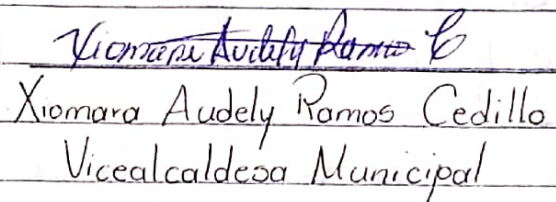 Xiomara Audely Ramos C
Xiomara Audely Ramos Cedillo
Vicealcaldesa Municipal